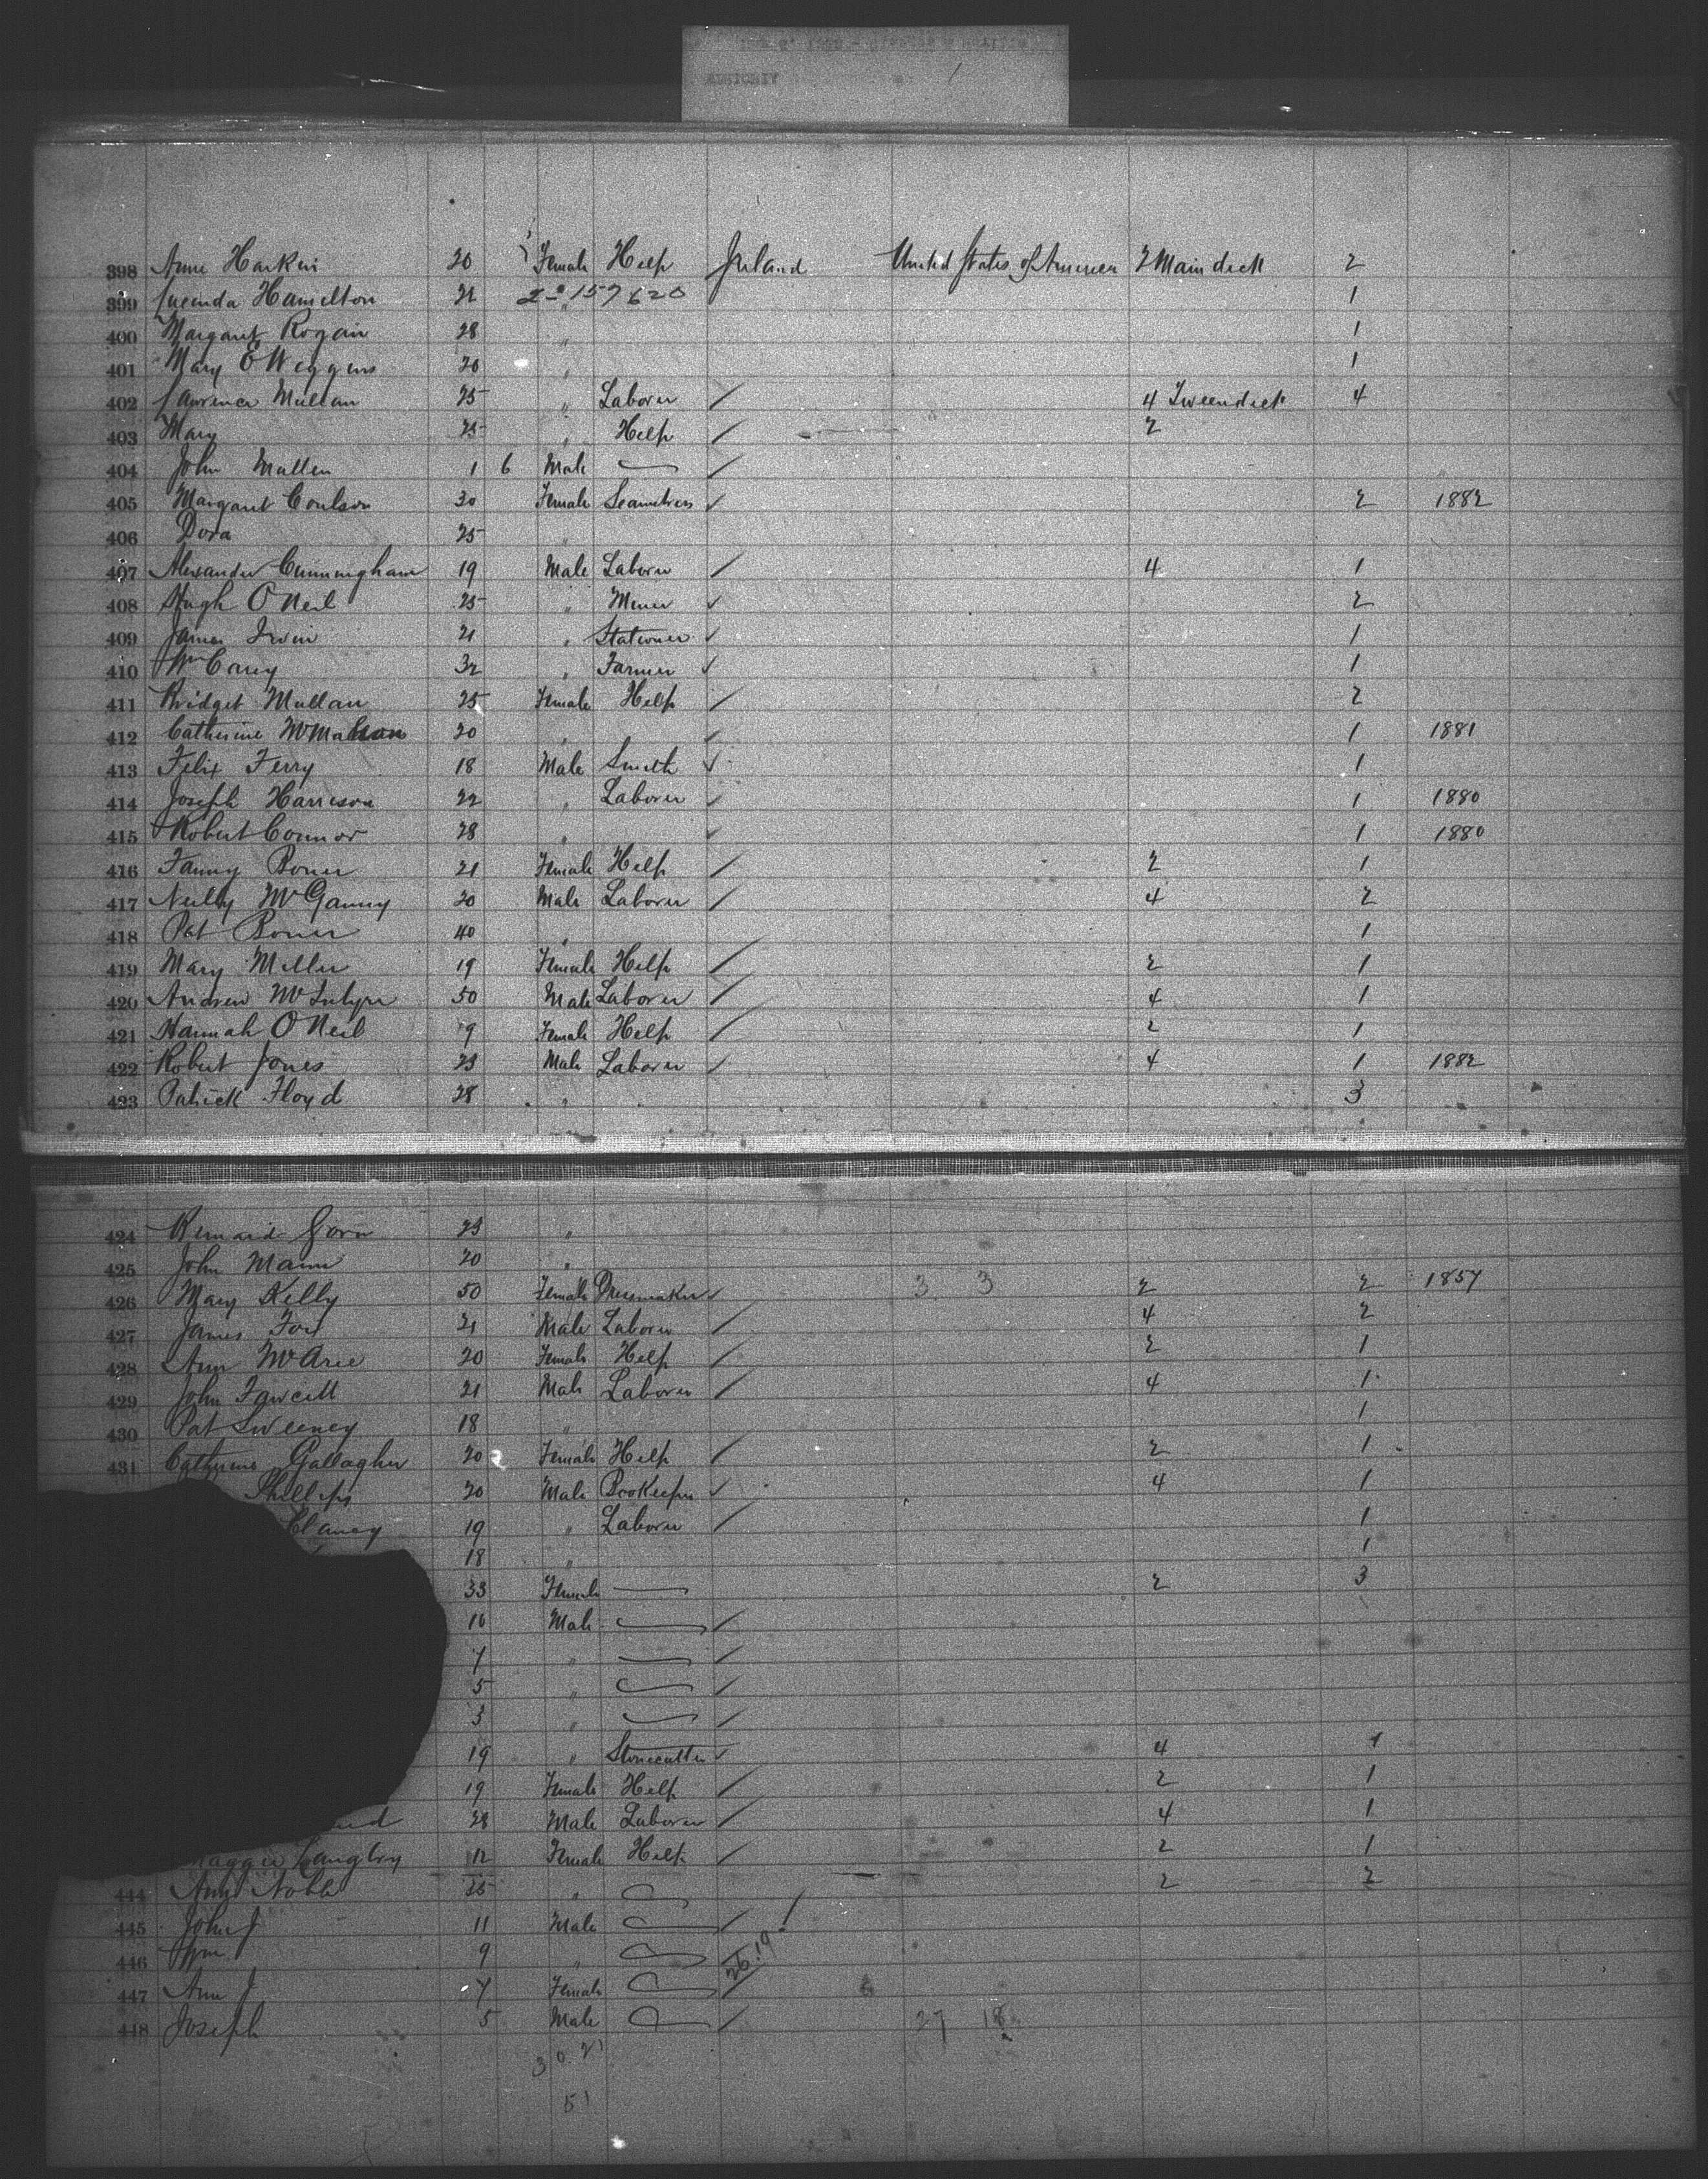 398 Anne Harkin 20 Female Help Ireland United States of America 2 Main deck 2
399 Lucinda Hamilton 21 2-0 157620 1
400 Margaret Rogan 28 " 1
401 Mary E Wiggins 20 " 1
402 Lawrence Mullan 25 " Laborer / 4 Tweendeck 4
403 Mary 25 " Help / 2
404 John Mullen 1 6 Male — /
405 Margaret Coulson 30 Female Seamstress ✓ 2 1882
406 Dora 25 "
407 Alexander Cunningham 19 Male Laborer / 4 1
408 Hugh O'Neil 25 " Miner ✓ 2
409 James Irvin 21 " Stationer ✓ 1
410 Wm Carey 32 " Farmer ✓ 1
411 Bridget Mullan 25 Female Help / 2
412 Catherine McMahon 20 " ✓ 1 1881
413 Felix Ferry 18 Male Smith ✓ 1
414 Joseph Harrison 22 " Laborer ✓ 1 1880
415 Robert Connor 28 " ✓ 1 1880
416 Fanny Boner 21 Female Help / 2 1
417 Neilly 20 Male Laborer / 4 2
418 Pat Boner 40 " 1
419 Mary Miller 19 Female Help / 2 1
420 Andrew McIntyre 50 Male Laborer / 4 1
421 Hannah O'Neil 9 Female Help / 2 1
422 Robert Jones 23 Male Laborer / 4 1 1882
423 Patrick Floyd 28 " 3
424 Bernard 23 "
425 John Mann 20 "
426 Mary Kelly 50 Female Dressmaker ✓ 3 3 2 2 1857
427 James Fox 21 Male Laborer / 4 2
428 Ann 20 Female Help / 2 1
429 John Fawcett 21 Male Laborer / 4 1
430 Pat Sweeney 18 " 1
431 Catherine Gallagher 20 Female Help / 2 1
Phillips 20 Male Bookeeper ✓ 4 1
Clancy 19 " Laborer / 1
18 " 1
33 Female — 2 3
10 Male — /
7 " — /
5 " — /
3 " — /
19 " Stonecutter ✓ 4 1
19 Female Help / 2 1
28 Male Laborer / 4 1
Maggie Langtry 12 Female Help / 2 1
444 Ann Noble 35 " — 2 2
445 John J 11 Male — /
446 Wm 9 " — 26.19
447 Ann J 7 Female — /
448 Joseph 5 Male — / 27 18
30 21
51